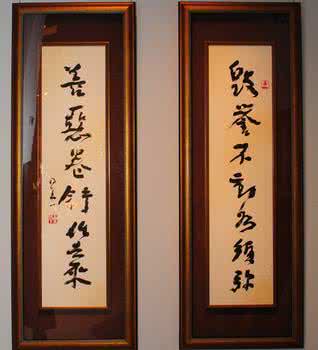 毀譽不動如須彌
善惡卷舒任去來